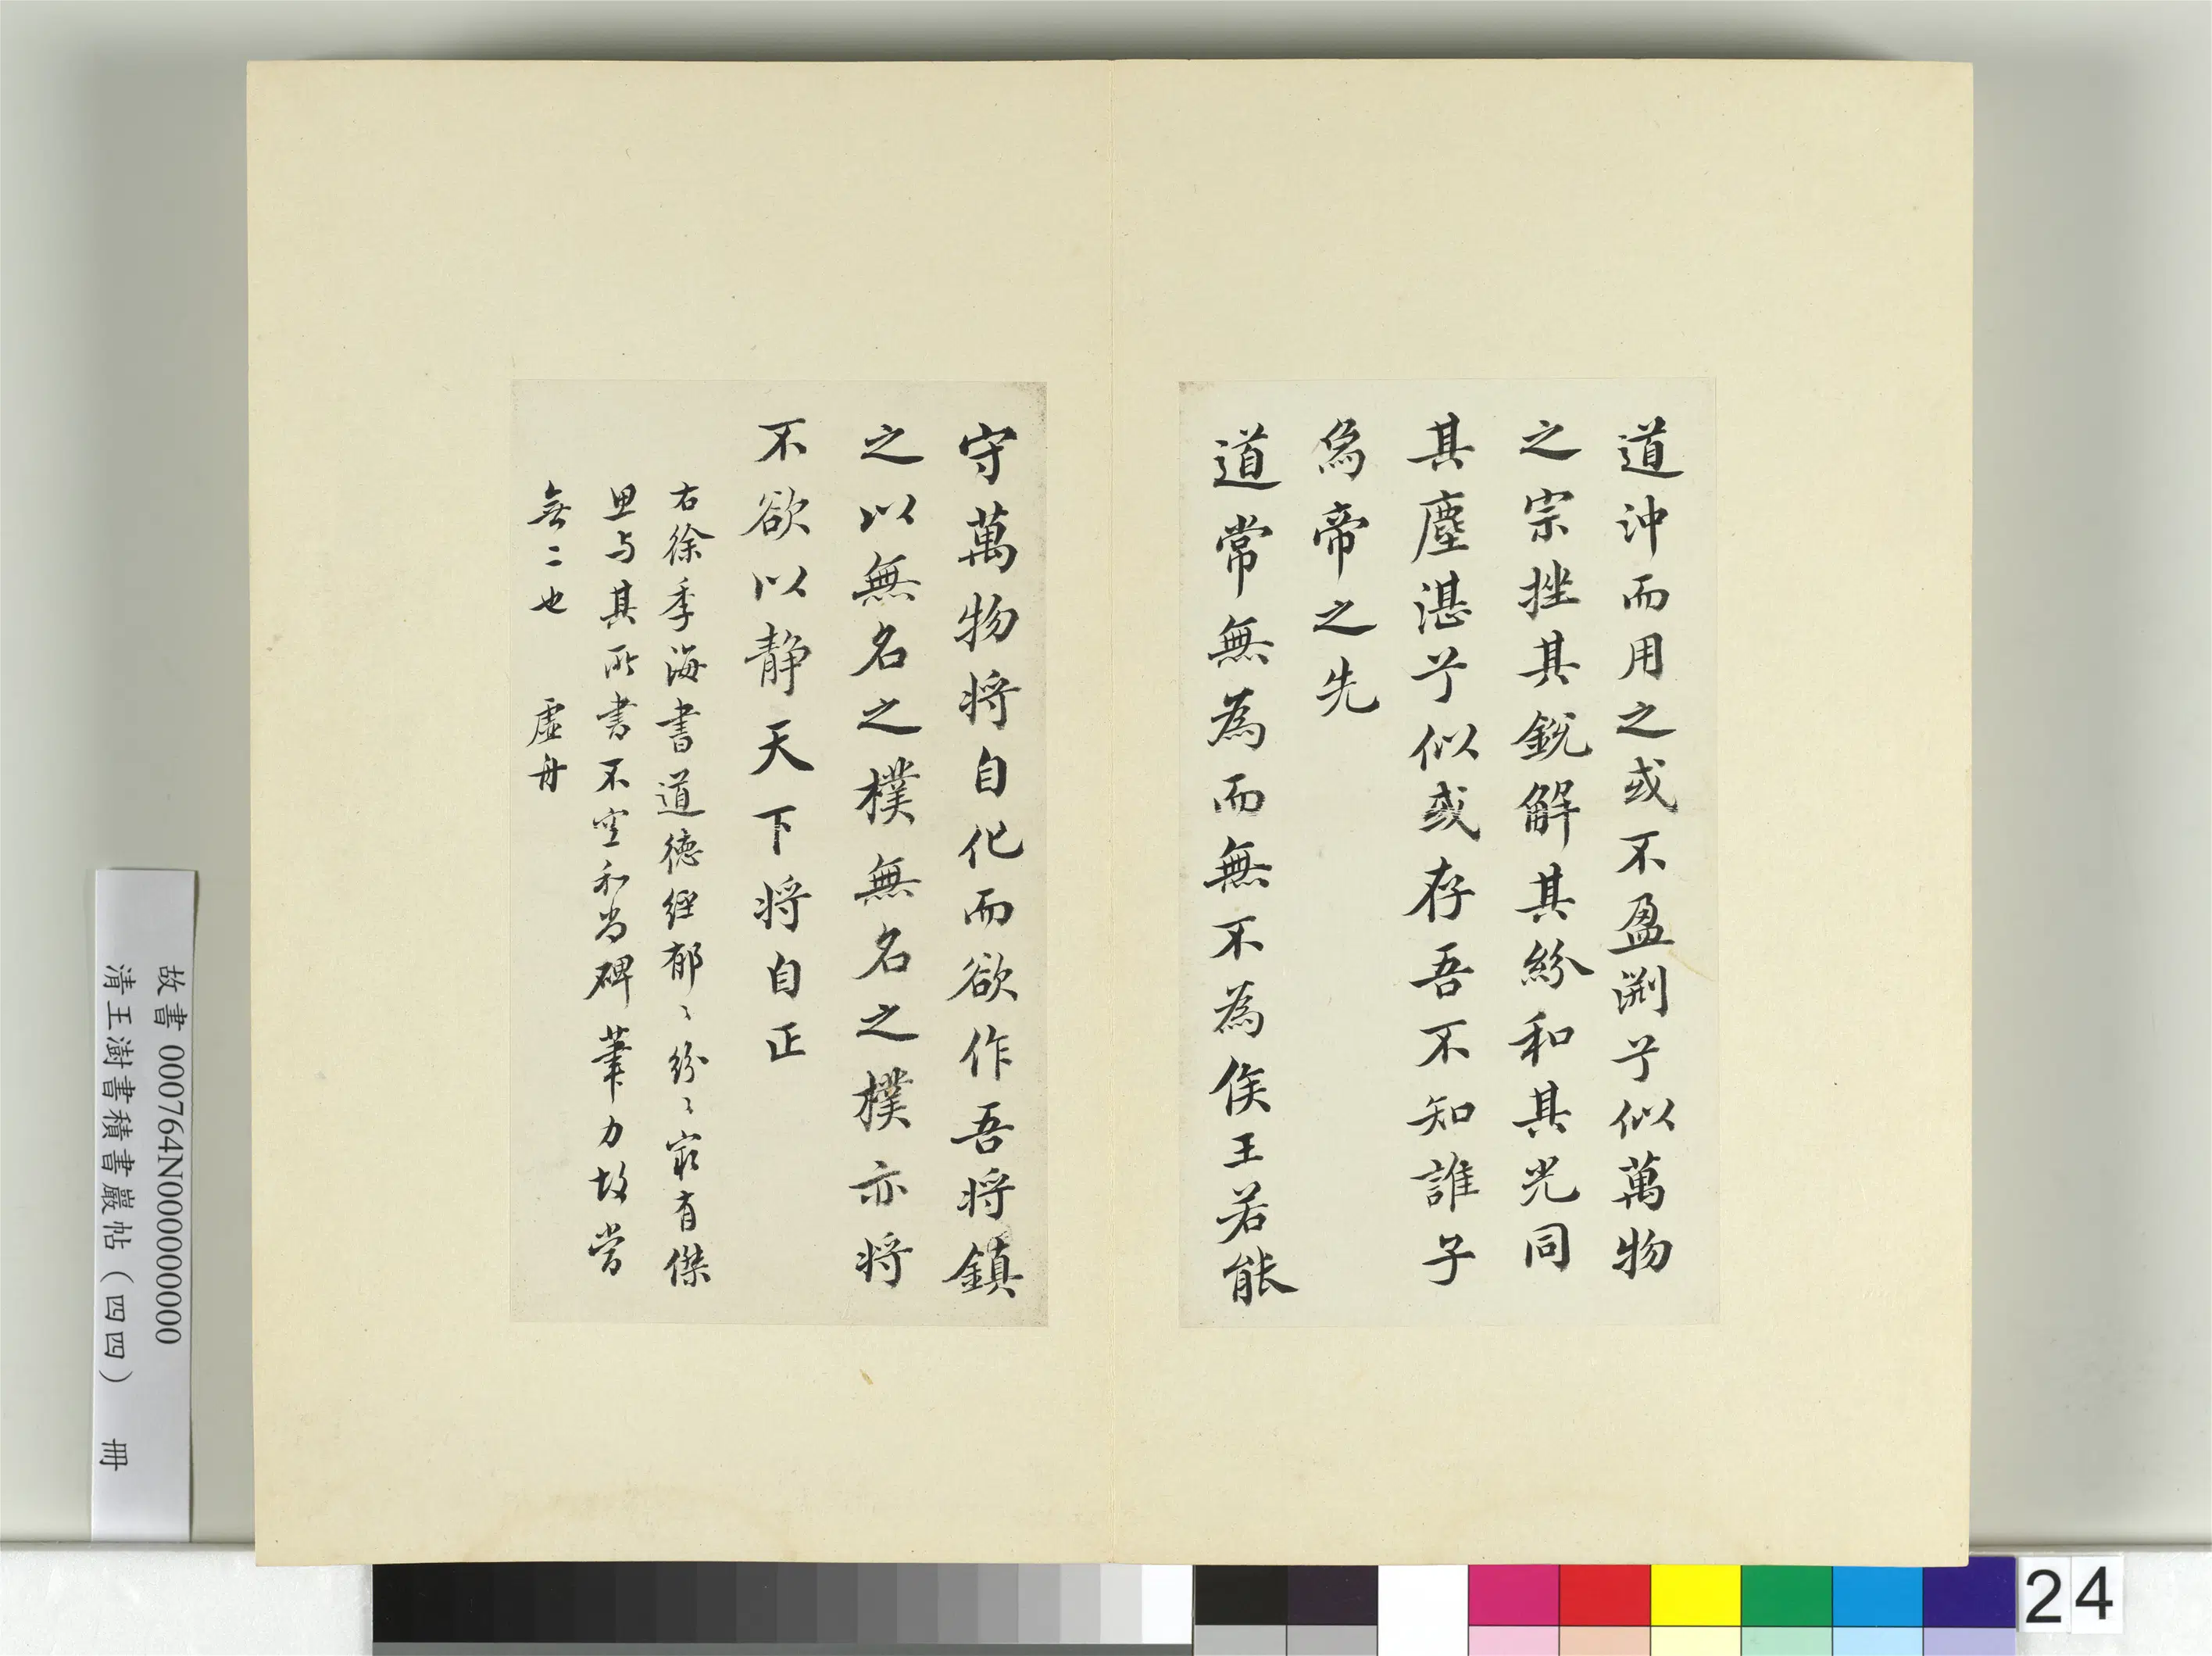 道沖而用之或不盈淵兮似萬物
之宗挫其銳解其紛和其光同
其塵湛兮似或存吾不知誰子
為帝之先
道常無為而無不為侯王若能
守萬物將自化而欲作吾將鎮
之以無名之樸無名之樸亦將
不欲以靜天下將自正
右徐季海書道德經郁〻紛〻最有傑
思与其所書不空和尚碑筆力故當
無二也　虛舟
故書 000764N000000000
清王澍書積書巖帖（四四）　冊
24